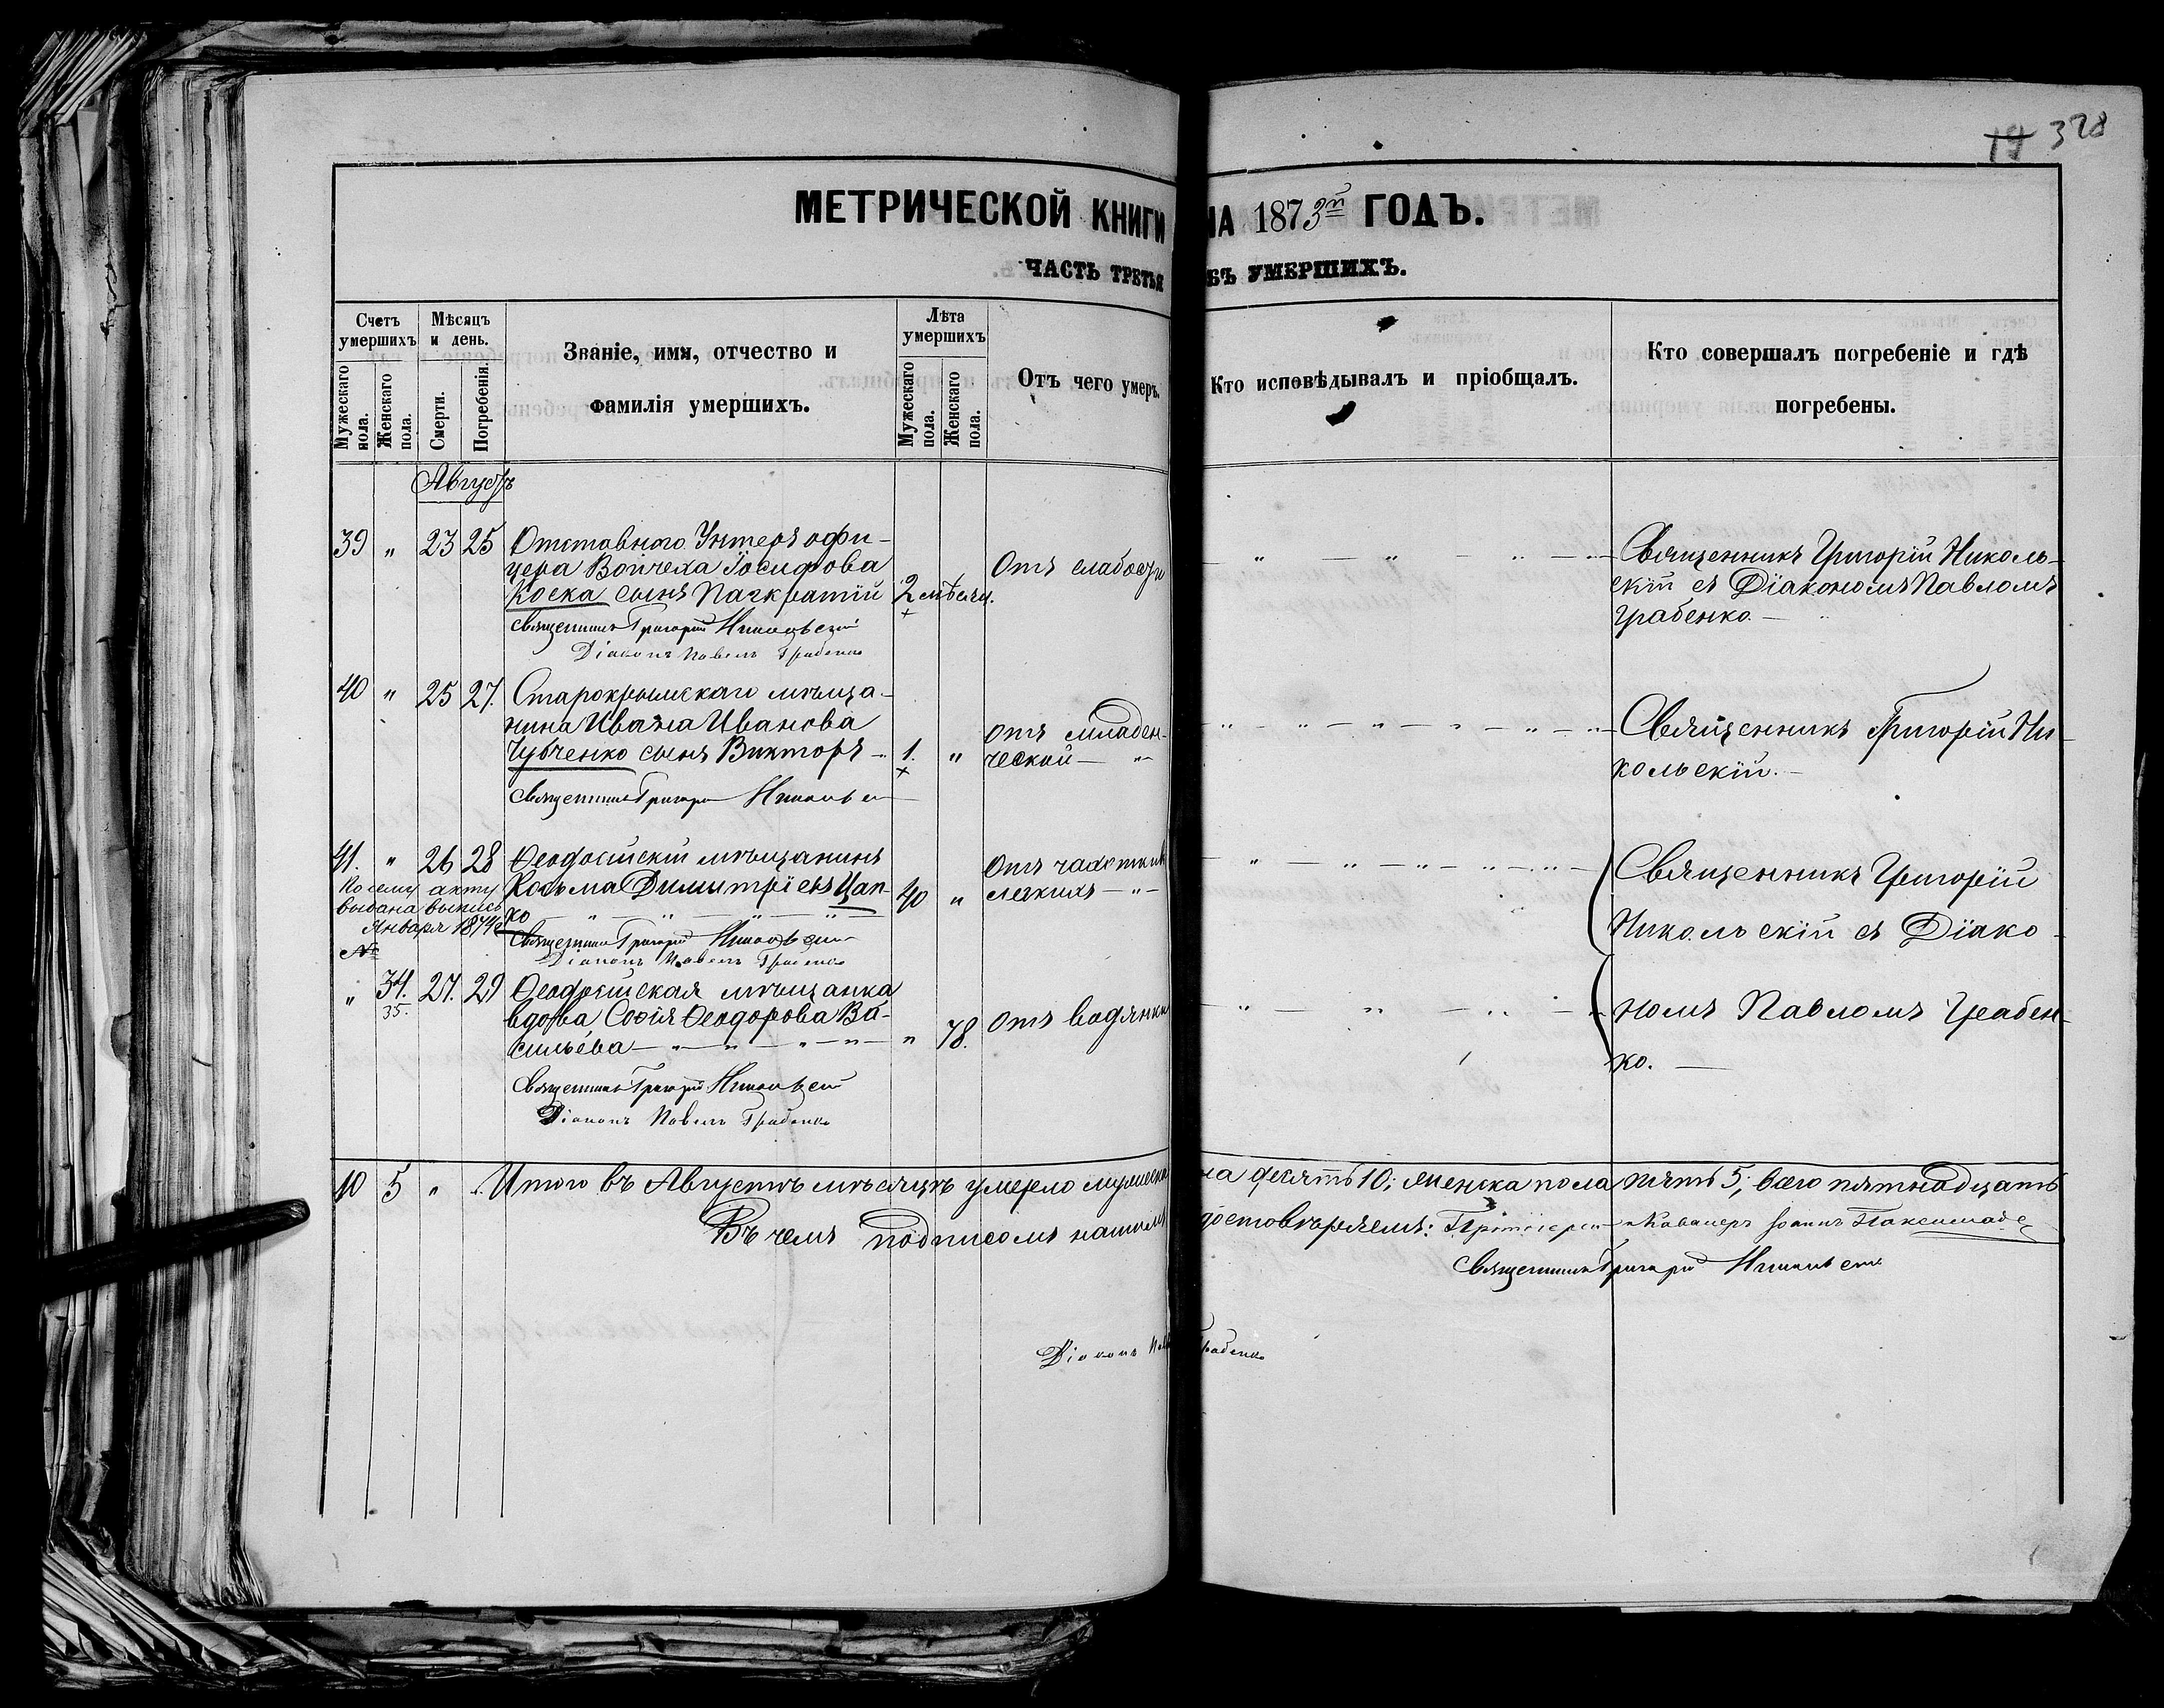 19 328
МЕТРИЧЕСКОЙ КНИГИ НА 1873й ГОДЪ.
ЧАСТЬ ТРЕТЬЯ ОБЪ УМЕРШИХЪ.
Счетъ умершихъ
Мужескаго пола.
Женскаго пола.
Мѣсяцъ и день.
Смерти.
Погребенія.
Званіе, имя, отчество и
фамилія умершихъ.
Лѣта умершихъ
Мужескаго пола.
Женскаго пола.
Отъ чего умеръ.
Кто исповѣдывалъ и пріобщалъ.
Кто совершалъ погребеніе и гдѣ
погребены.
Августъ
39 " 23 25 Отставного Унтеръ офи-
цера Войчеха Іосифова
Коска сынъ Панкратій 2 мѣсяц. Отъ слабости
Священникъ Григорій Никольскій
Діаконъ Павелъ Грабенко
Священникъ Григорій Николь-
скій съ Діакономъ Павломъ
Грабенко. —
40 " 25 27. Старокрымскаго мѣща-
нина Ивана Ивановa
Чубченко сынъ Викторъ — 1. " отъ младен-
ческой — "
Священникъ Григорій Никольскій
Священникъ Григорій Ни-
кольскій. —
41. " 26 28 Ѳеодосійскій мѣщанинъ
Козьма Димитріевъ Цап-
ко 40 " Отъ чахотки
легкихъ — " —
По сему акту
выдана выпись
Января 1874
№
Священникъ Григорій Никольскій
Діаконъ Павелъ Грабенко
Священникъ Григорій
Никольскій съ Діако-
номъ Павломъ Грабен-
ко. —
" 34. 27. 29 Ѳеодосійская мѣщанка
35.
вдова Софія Ѳеодорова Ва-
сильева — " 78. Отъ водянки
Священникъ Григорій Никольскій
Діаконъ Павелъ Грабенко
10 5 " Итого въ Августѣ мѣсяцѣ умерло мужеска пола десять 10; женска пола пять 5; всего пятнадцать
Въ чемъ подписомъ нашимъ достовѣряемъ: Протоіерей и Кавалеръ Іоаннъ
Священникъ Григорій Никольскій
Діаконъ Павелъ Грабенко